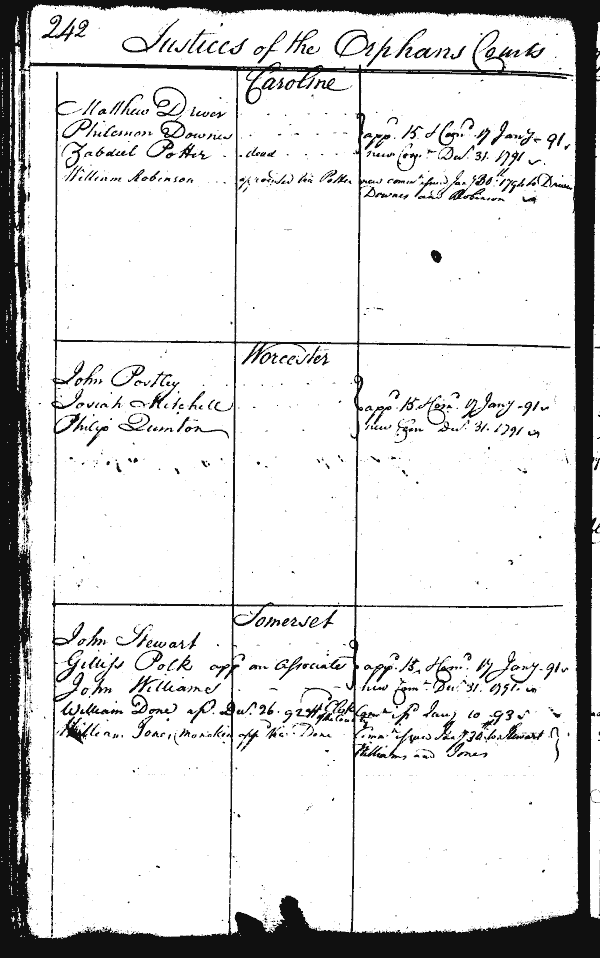 242
Justices of the Orphans Courts
Caroline
Matthew Driver
Philemon Downes
Zabdiel Potter . dead
William Robinson appointed vice Potter
app.d 15 & Com.n 17 Jan.y - 91
new Com.n Dec. 31. 1791
new com.n issued Jan.y 30.th 1794 to Driver
Downes and Robinson
Worcester
John Postley
Josiah Mitchell
Philip Quinton
app.d 15 & Com.n 17 Jan.y - 91
new Com.n Dec. 31. 1791
Somerset
John Stewart
Gilliss Polk app.d an Associate
John Williams
William Done ap.d Dec. 26. 92
William Jones (Monakin app.d vice Done
app.d 15. & Com.n 17 Jan.y 91
new Com.n Dec. 31. 1791
Com.n Jan.y 10 - 93
Com.n issued Jan.y 30.th to Stewart
Williams and Jones